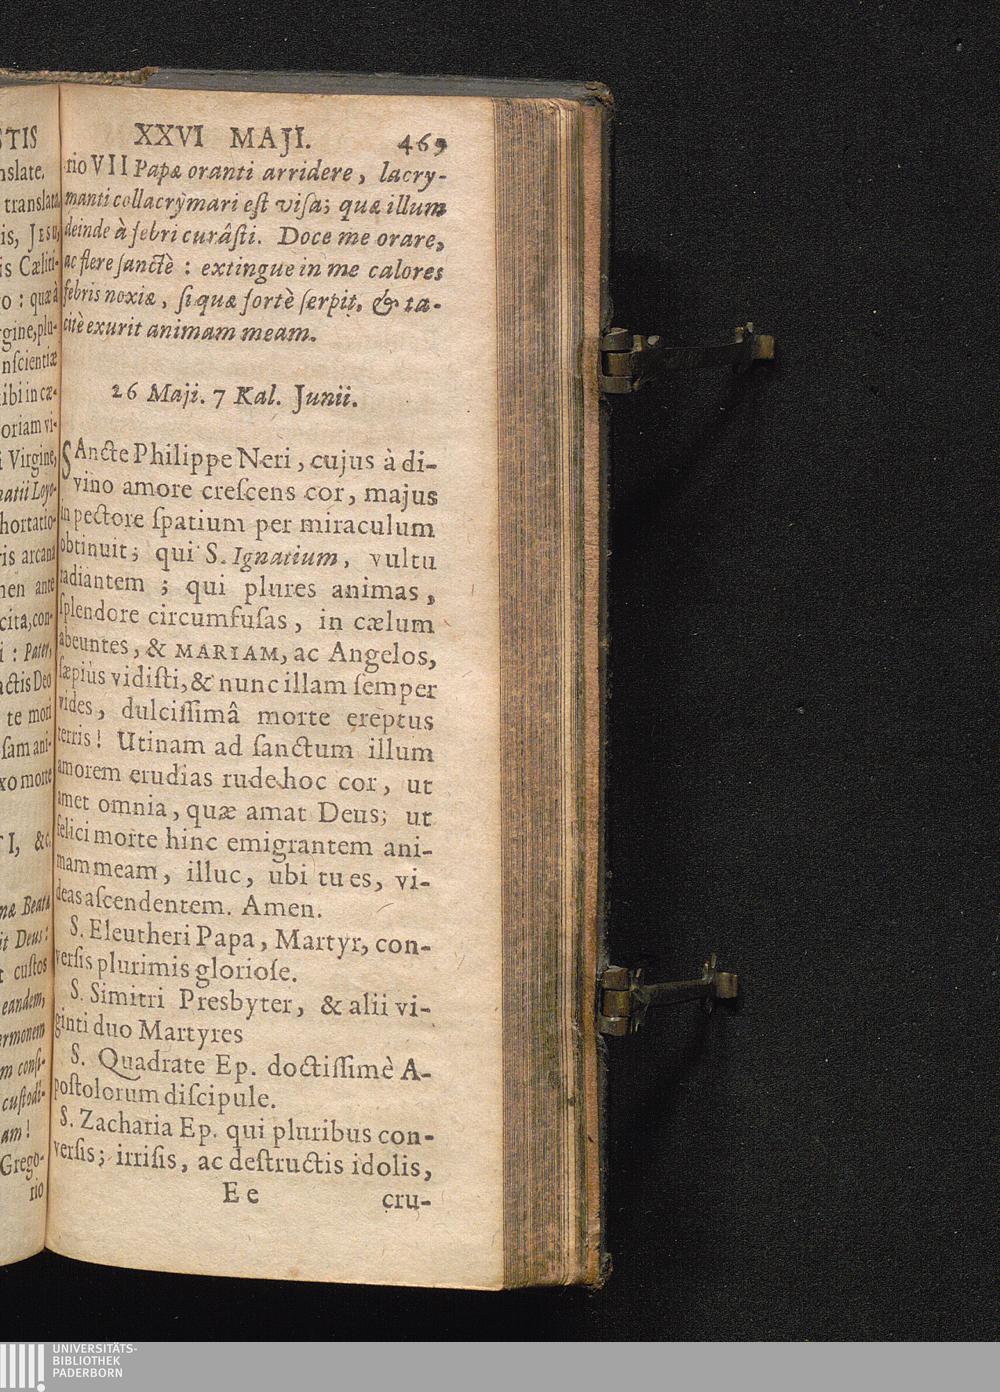 STIS
nslate.
translata
is, JESU,
is Cæliti-
o : quæ à
gine, plu-
nscientiæ
ibi in cæ-
oriam vi-
i Virgine,
natii Loyo-
hortatio-
ris arcana
nen ante
cita, con-
i : Pater,
actis Deo
te mori
sam ani-
xo morte
I, &c.
næ Beata
it Deus:
t custos
eandem,
ermonem
m consi-
custodi-
am!
Grego-
rio
XXVI MAJI. 469
rio VII Papæ oranti arridere, lacry-
manti collacrymari est visa; quæ illum
deinde à febri curâsti. Doce me orare,
ac flere sanctè : extingue in me calores
febris noxiæ, si quæ fortè serpit, & ta-
citè exurit animam meam.
26 Maji. 7 Kal. Junii.
SAncte Philippe Neri, cujus à di-
vino amore crescens cor, majus
in pectore spatium per miraculum
obtinuit; qui S. Ignatium, vultu
radiantem ; qui plures animas,
splendore circumfusas, in cælum
abeuntes, & MARIAM, ac Angelos,
sæpiùs vidisti, & nunc illam semper
vides, dulcissimâ morte ereptus
terris! Utinam ad sanctum illum
amorem erudias rude hoc cor, ut
amet omnia, quæ amat Deus; ut
felici morte hinc emigrantem ani-
mam meam, illuc, ubi tu es, vi-
deas ascendentem. Amen.
S. Eleutheri Papa, Martyr, con-
versis plurimis gloriose.
S. Simitri Presbyter, & alii vi-
ginti duo Martyres
S. Quadrate Ep. doctissimè A-
postolorum discipule.
S. Zacharia Ep. qui pluribus con-
versis; irrisis, ac destructis idolis,
E e cru-
UNIVERSITÄTS-
BIBLIOTHEK
PADERBORN